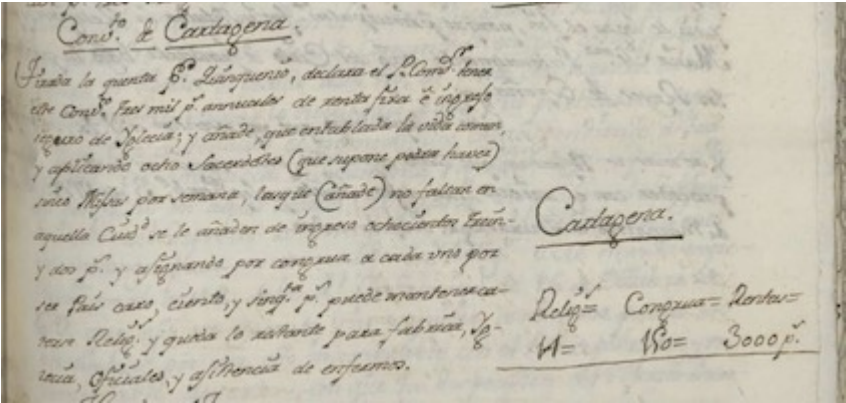 Conv.to de Cartagena.
Tirada la quenta p.r Quinquenio, declara el P. Com.r tener
este Conv.to tres mil p.s annuales de renta fixa è ingreso
seguro de Yglesia; y añade, que entablada la vida comun,
y aplicando ocho Sacerdotes (que supone podrà haver)
cinco Missas por semana, las que (añade) no faltan en
aquella Ciud.d se le añaden de ingreso ochocientos trein-
y dos p.s y asignando por congrua a cada uno por
ser Pais caro, ciento, y sinq.ta p.s puede mantener ca-
torse Relig.s y queda lo restante para fabrica, Yg-
lecia, Oficiales, y asistencia de enfermos.
Cartagena.
Relig.s= Congrua= Rentas=
14= 150= 3000 p.s